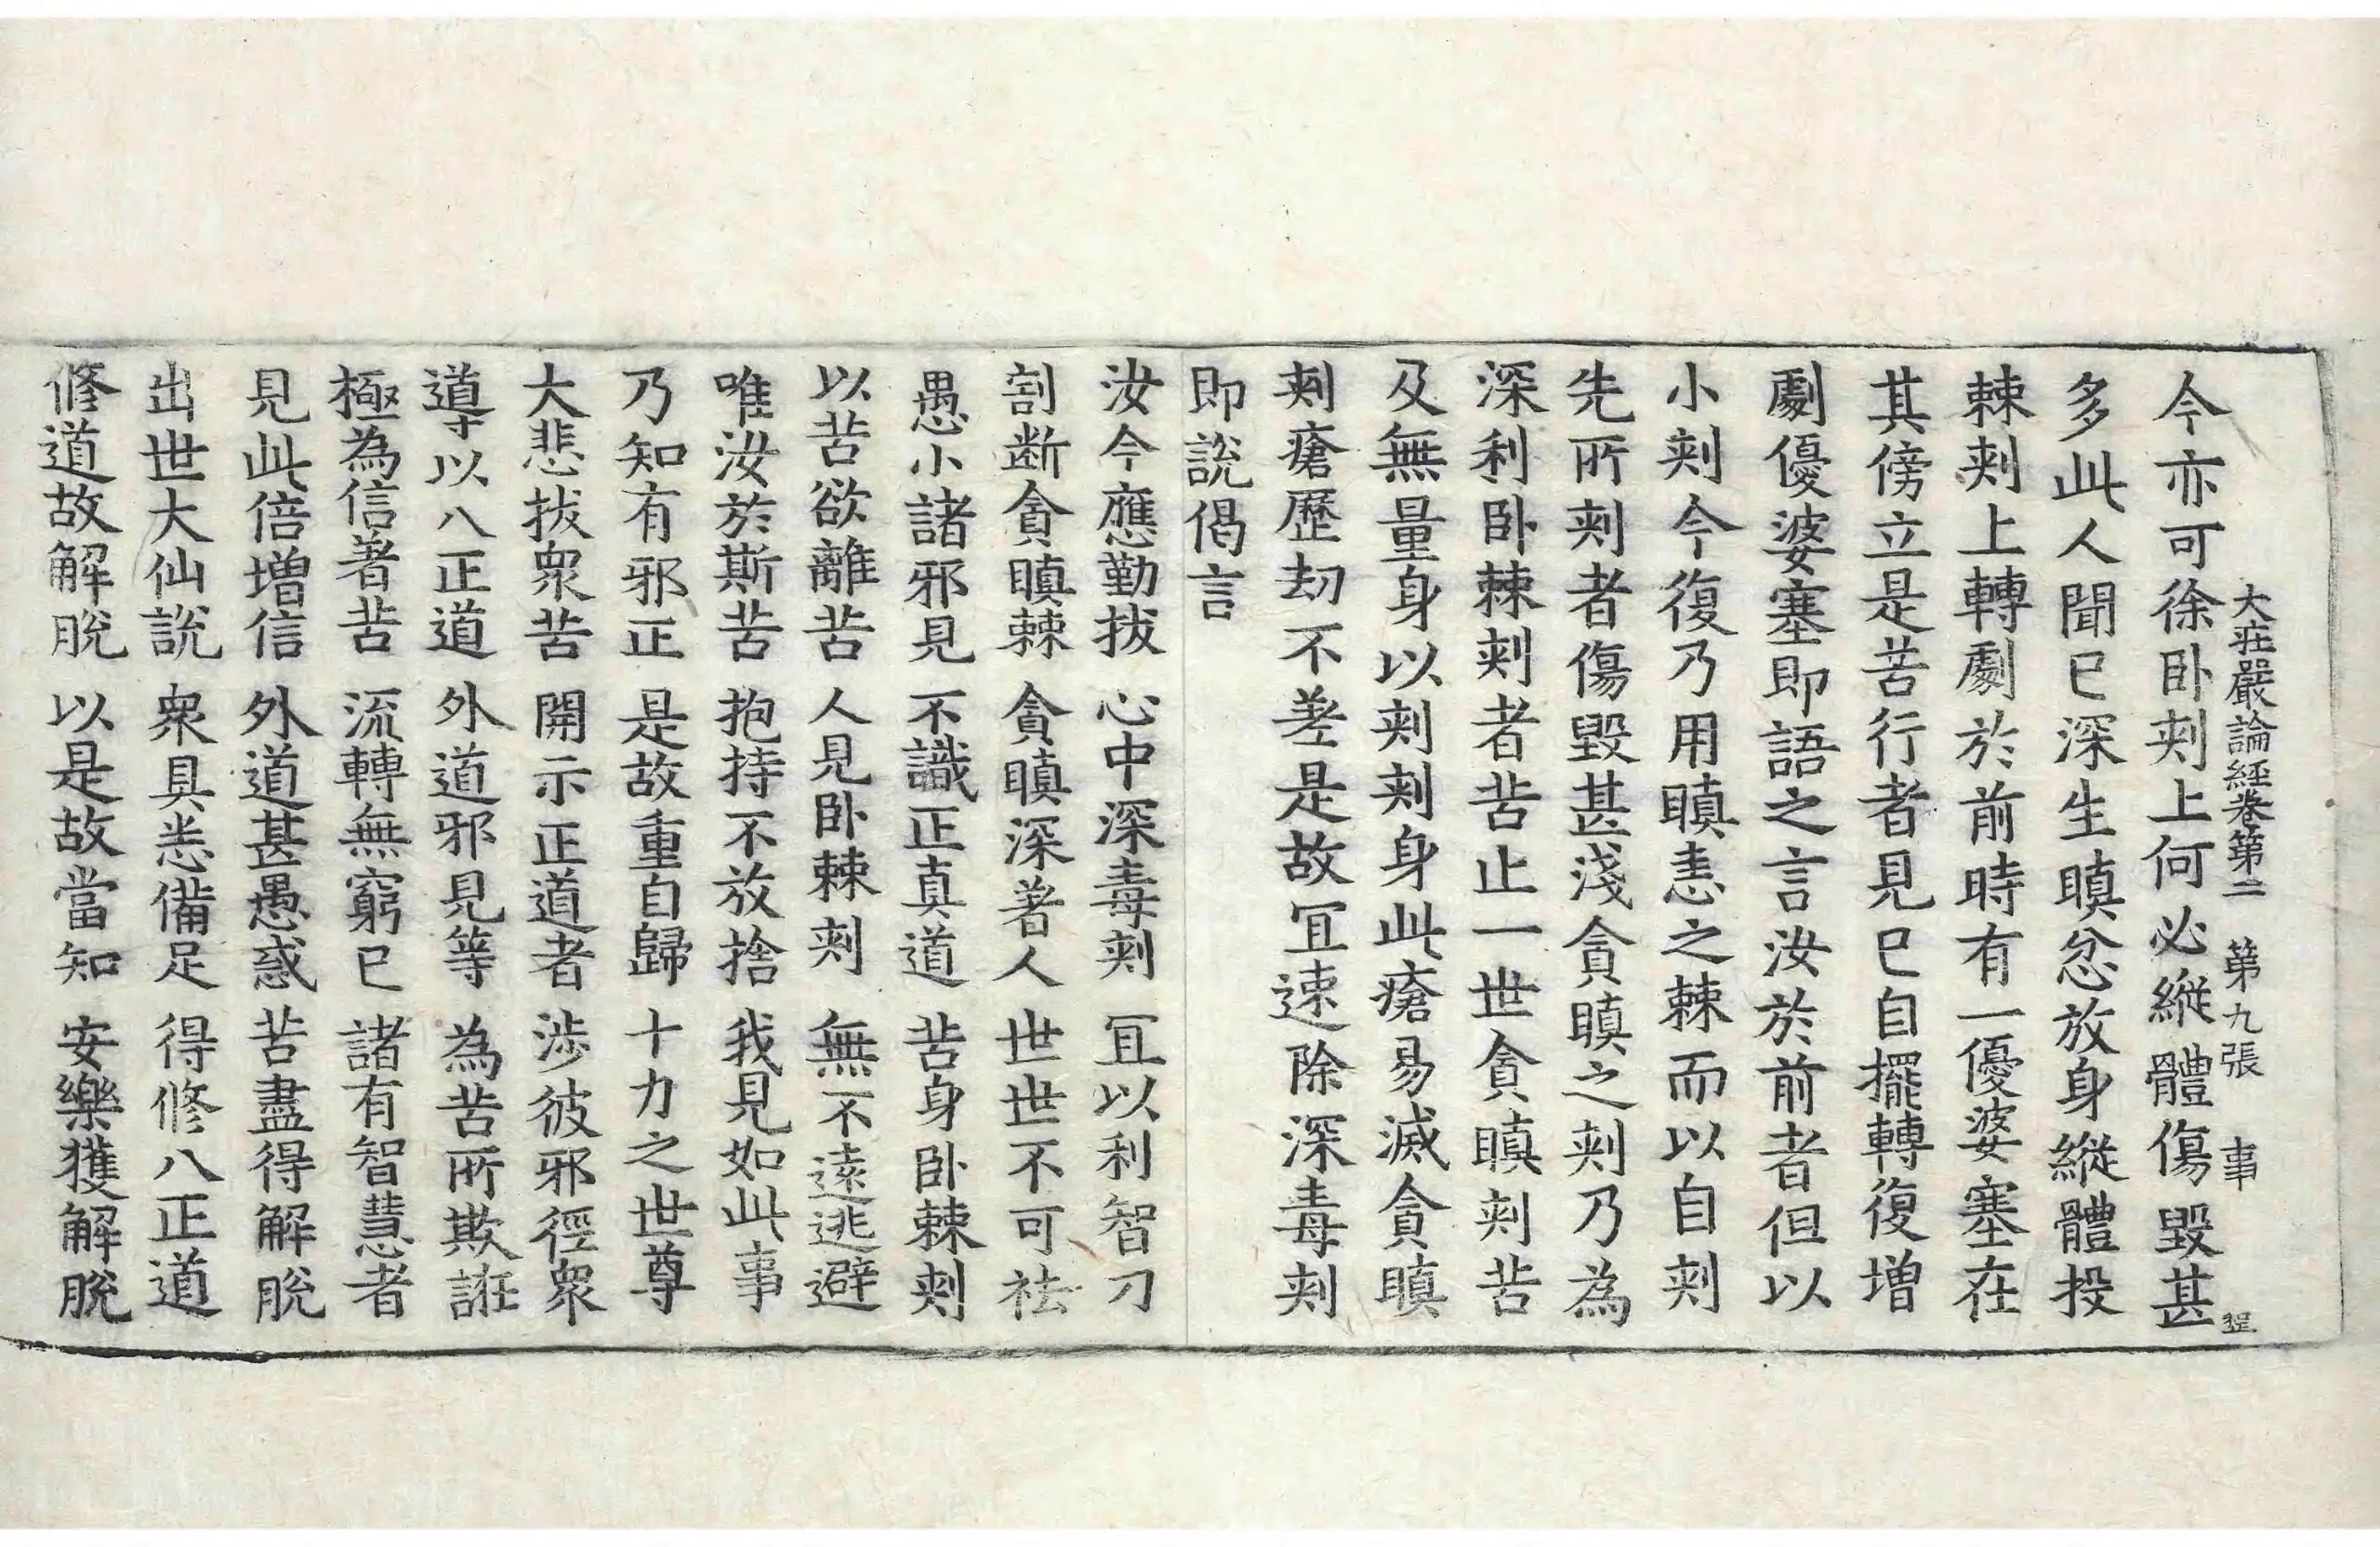 大莊嚴論經卷第二　第九張　事
今亦可徐卧刾上何必縱體傷毀甚
多此人聞已深生瞋忿放身縱體投
棘刾上轉劇於前時有一優婆塞在
其傍立是苦行者見已自擺轉復增
劇優婆塞即語之言汝於前者但以
小刾今復乃用瞋恚之棘而以自刾
先所刾者傷毀甚淺貪瞋之刾乃為
深利卧棘刾者苦止一世貪瞋刾苦
及無量身以刾刾身此瘡易滅貪瞋
刾瘡歷劫不差是故冝速除深毒刾
即說偈言
汝今應勤拔　心中深毒刾　冝以利智刀
割断貪瞋棘　貪瞋深著人　世世不可祛
愚小諸邪見　不識正真道　苦身卧棘刾
以苦欲離苦　人見卧棘刾　無不遠逃避
唯汝於斯苦　抱持不放捨　我見如此事
乃知有邪正　是故重自歸　十力之世尊
大悲拔衆苦　開示正道者　涉彼邪徑衆
導以八正道　外道邪見等　為苦所欺誑
極為信著苦　流轉無窮已　諸有智慧者
見此倍增信　外道甚愚惑　苦盡得解脫
出世大仙說　衆具悉備足　得修八正道
修道故解脫　以是故當知　安樂獲解脫